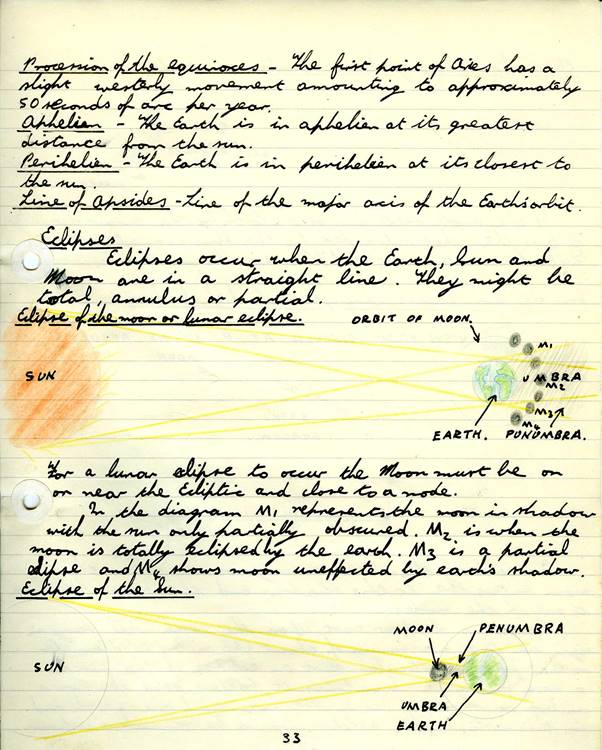 Procession of the equinoxes - The first point of Aries has a
slight westerly movement amounting to approximately
50 seconds of arc per year.
Aphelien - The Earth is in aphelien at its greatest
distance from the sun.
Perihelien - The Earth is in perihelien at its closest to
the sun.
Line of Apsides - Line of the major axis of the Earth's orbit.
Eclipses
Eclipses occur when the Earth, Sun and
Moon are in a straight line. They might be
total, annulus or partial.
Eclipse of the moon or lunar eclipse.
ORBIT OF MOON.
M1
SUN
UMBRA
M2
M3
M4
EARTH. PUNUMBRA.
For a lunar eclipse to occur the Moon must be on
or near the Ecliptic and close to a node.
In the diagram M1 represents the moon in shadow
with the sun only partially obscured. M2 is when the
moon is totally eclipsed by the earth. M3 is a partial
elipse and M4 shows moon uneffected by earth's shadow.
Eclipse of the Sun.
MOON PENUMBRA
SUN
UMBRA
EARTH
33